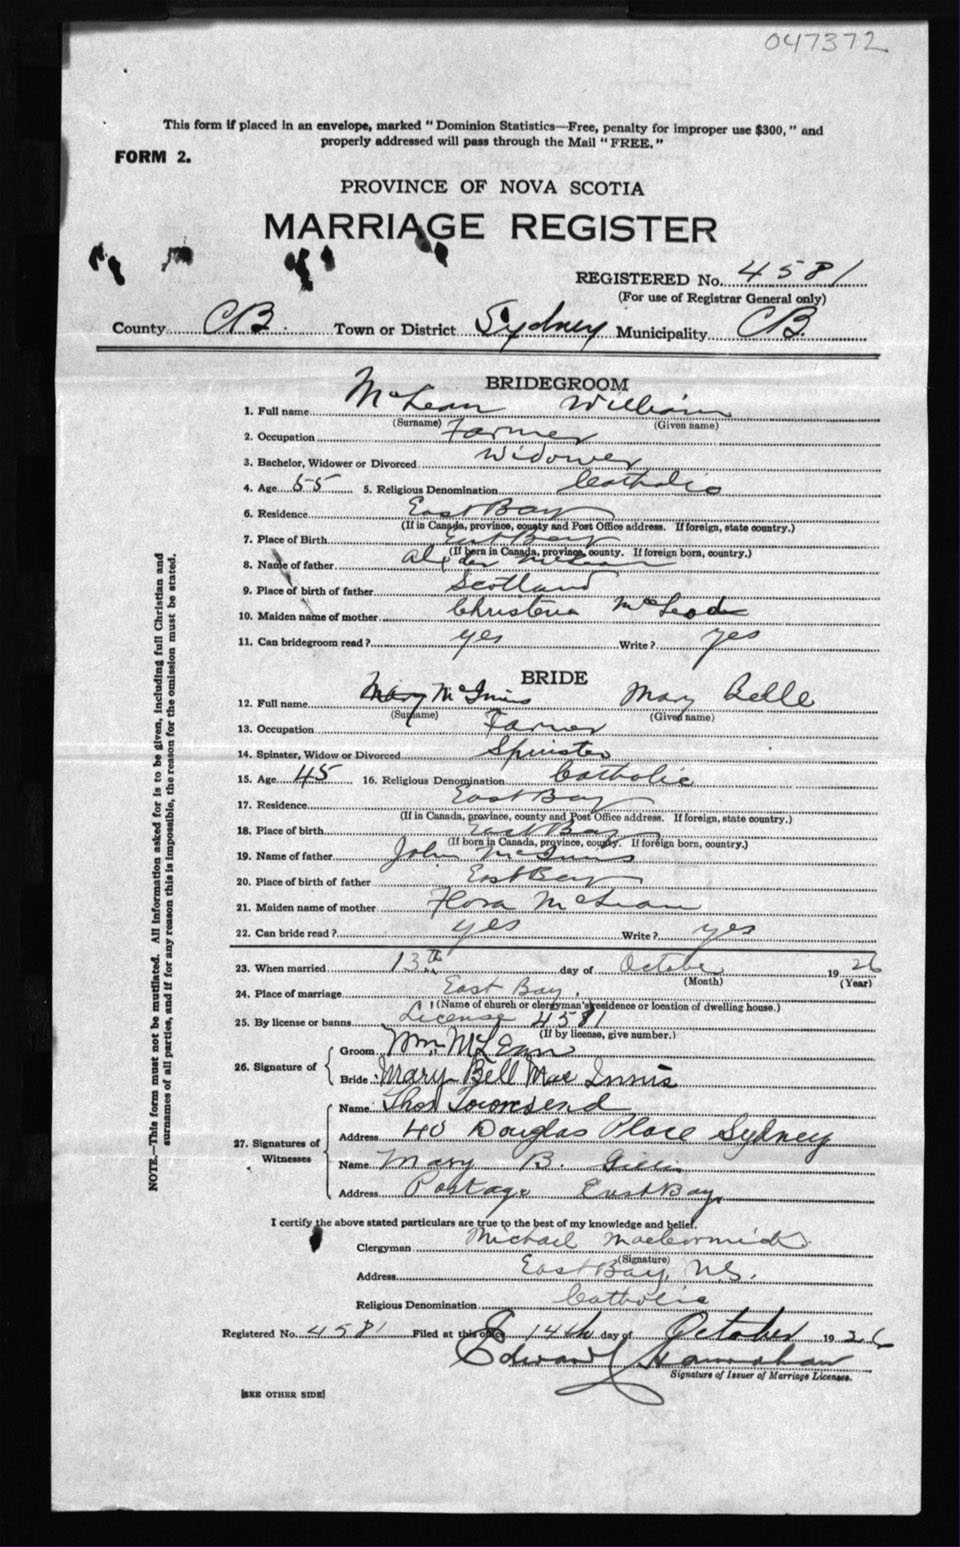 047372
This form if placed in an envelope, marked "Dominion Statistics—Free, penalty for improper use $300," and
properly addressed will pass through the Mail "FREE."
FORM 2.
PROVINCE OF NOVA SCOTIA
MARRIAGE REGISTER
REGISTERED No. 4581
(For use of Registrar General only)
County CB. Town or District Sydney Municipality CB.
BRIDEGROOM
1. Full name McLean William
(Surname) (Given name)
2. Occupation Farmer
3. Bachelor, Widower or Divorced Widower
4. Age 55 5. Religious Denomination Catholic
6. Residence East Bay
(If in Canada, province, county and Post Office address. If foreign, state country.)
7. Place of Birth East Bay
(If born in Canada, province, county. If foreign born, country.)
8. Name of father Alexder McLean
9. Place of birth of father Scotland
10. Maiden name of mother Christena McLeod
11. Can bridegroom read? yes Write? yes
BRIDE
12. Full name Mary McInnis Mary Belle
(Surname) (Given name)
13. Occupation Farmer
14. Spinster, Widow or Divorced Spinster
15. Age 45 16. Religious Denomination Catholic
17. Residence East Bay
(If in Canada, province, county and Post Office address. If foreign, state country.)
18. Place of birth East Bay
(If born in Canada, province, county. If foreign born, country.)
19. Name of father John McInnis
20. Place of birth of father East Bay
21. Maiden name of mother Flora McLean
22. Can bride read? yes Write? yes
23. When married 13th day of October 1926
(Month) (Year)
24. Place of marriage East Bay,
(Name of church or clergyman's residence or location of dwelling house.)
25. By license or banns License 4581
(If by license, give number.)
26. Signature of Groom Wm. McLean
Bride Mary Bell Mac Innis
27. Signatures of Witnesses Name Thos Townsend
Address 40 Douglas Place Sydney
Name Mary B. Gillis
Address Portage East Bay
I certify the above stated particulars are true to the best of my knowledge and belief.
Clergyman Michael MacCormick
(Signature)
Address East Bay, N.S.
Religious Denomination Catholic
Registered No. 4581 Filed at this office 14th day of October 1926
Edward
Signature of Issuer of Marriage Licenses.
[SEE OTHER SIDE]
NOTE.—This form must not be mutilated. All information asked for is to be given, including full Christian and
surnames of all parties, and if for any reason this is impossible, the reason for the omission must be stated.